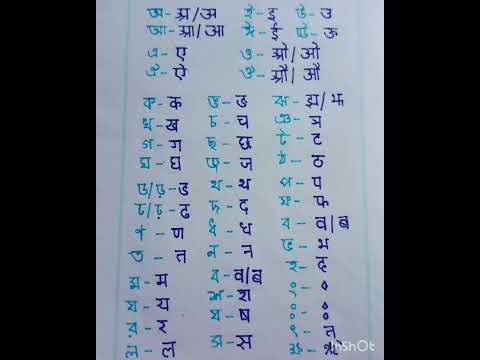 অ - अ/अ ই - इ উ - उ
আ - आ/आ ঈ - ई ঊ - ऊ
এ - ए ও - ओ/ओ
ঐ - ऐ ঔ - औ/औ
ক - क ঙ - ङ ঝ - झ/झ
খ - ख চ - च ঞ - ञ
গ - ग ছ - छ ট - ट
ঘ - घ জ - ज ঠ - ठ
ড/ড় - ड থ - थ প - प
ঢ/ঢ় - ढ দ - द ফ - फ
ণ - ण ধ - ध ব - व/ब
ত - त ন - न ভ - भ
ম - म ব - व/ब হ - ह
য - य শ - श
র - र ষ - ष
ল - ल স - स